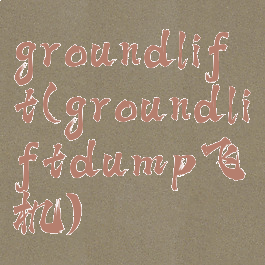 groundlif
t(groundli
ftdump飞
机)